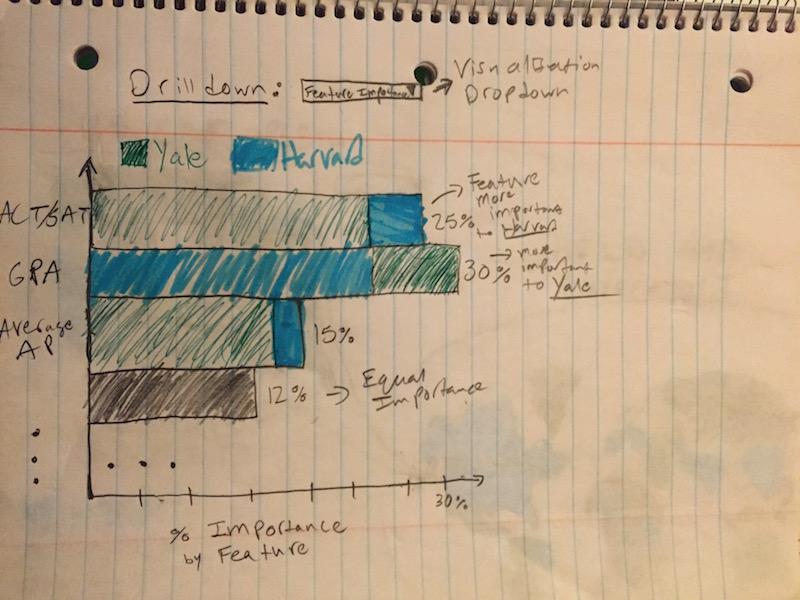 Drilldown: Feature Importance → Visualization
Dropdown
Yale Harvard
ACT/SAT
25%
→ Feature
more
important
to Harvard
GPA
30%
→ more
important
to Yale
Average
AP
15%
12% → Equal
Importance
30%
% Importance
by Feature